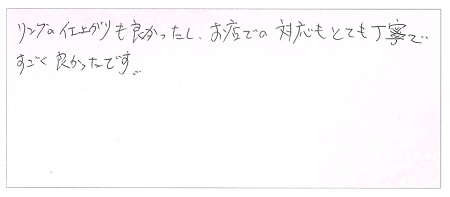 リングの仕上がりも良かったし、お店での対応もとても丁寧で
すごく良かったです。